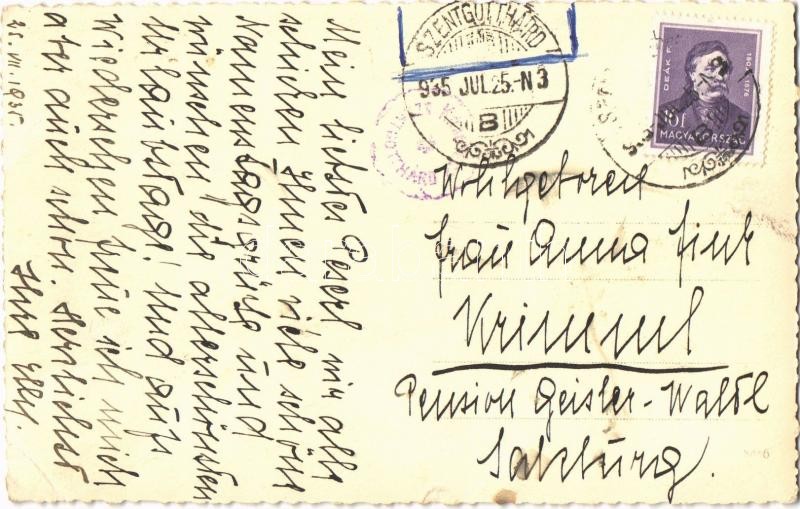 25. VII. 1935
Mein liebstes Peserl wir alle
schicken Ihnen viele schöne
Namenstagsgrüße und
wünschen die allerschönsten
Urlaubstage! Und aufs
Wiedersehen freue ich mich
aber auch schon. Herzlichst
Ihre
SZENTGOTTHÁRD
935 JUL.25.-N3
B
DEÁK F.
1803-1876
MAGYARORSZÁG
Wohlgeboren
Frau Anna Fink
Krimml
Pension Geisler-Waldl
Salzburg.